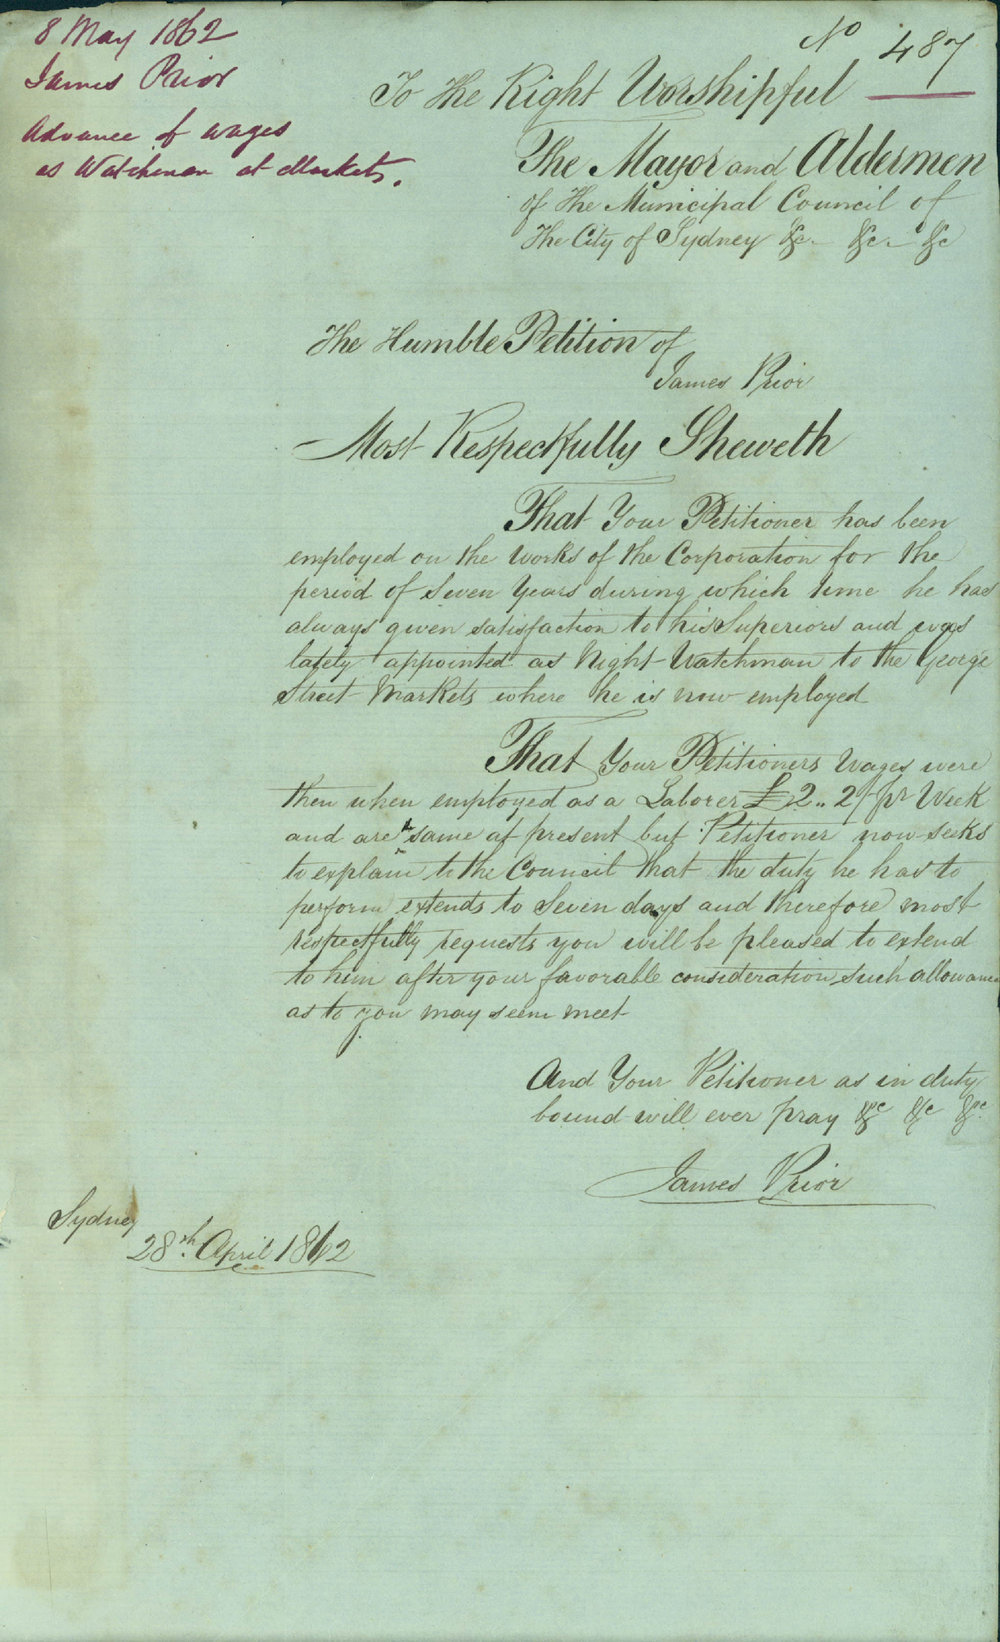 8 May 1862
James Prior
Advance of wages
as Watchman at Markets.
No 487
To the Right Worshipful
The Mayor and Aldermen
of the Municipal Council of
the City of Sydney &c. &c. &c
The Humble Petition of
James Prior
Most Respectfully Sheweth
That Your Petitioner has been
employed on the works of the Corporation for the
period of Seven Years during which time he has
always given satisfaction to his Superiors and was
lately appointed as Night Watchman to the George
Street Markets where he is now employed
That Your Petitioners Wages were
then when employed as a Laborer £2.. 2/- pr Week
and are same at present but Petitioner now seeks
to explain to the Council that the duty he has to
perform extends to Seven days and therefore most
respectfully requests you will be pleased to extend
to him after your favorable consideration such allowance
as to you may seem meet
And Your Petitioner as in duty
bound will ever pray &c &c &c.
James Prior
Sydney
28th. April 1862